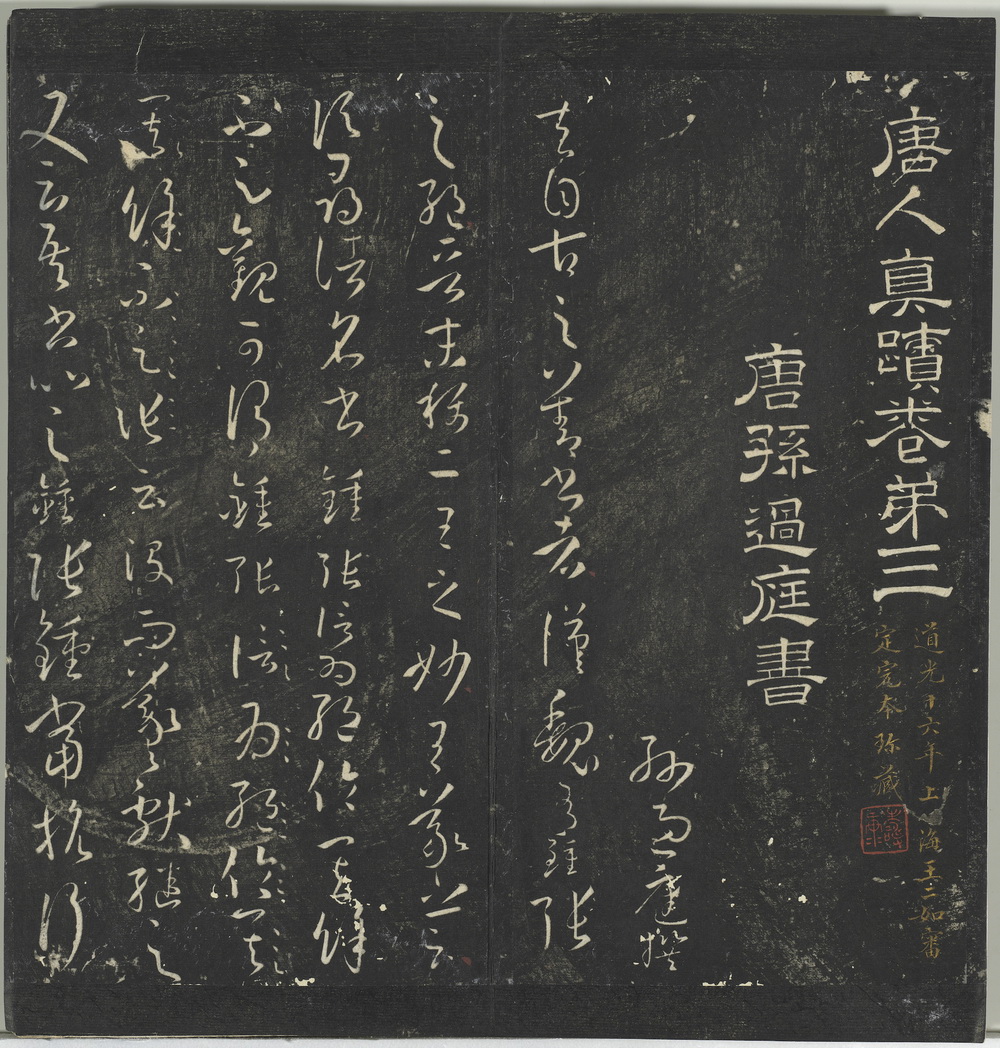 唐人真蹟卷弟三
道光十六年上海王二如審
定宽本珍藏
唐孫過庭書
孫過庭撰
夫自古之善書者漢魏有鍾張
之絕晉末稱二王之妙王羲之云
頃尋諸名書鍾張信為絕倫其餘
不足觀可謂鍾張信為絕倫其
其餘不足張云沒而羲獻繼之
又云吾書比之鍾張鍾當抗行